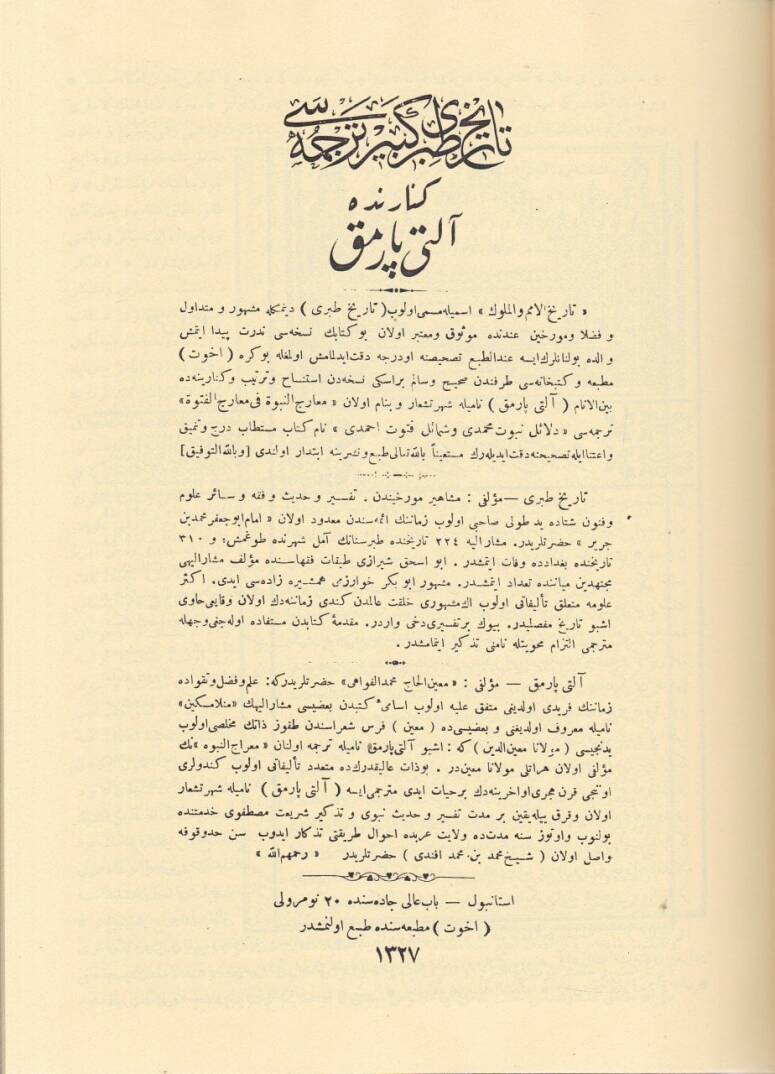 تاریخ طبری کبیر ترجمه‌سی
کنارنده
آلتی پارمق
« تاریخ الامم والملوك » اسمیله مسمی اولوب ( تاریخ طبری ) دیمكله مشهور و متداول
و فضلا ومورخین عندنده موثوق ومعتبر اولان بوکتابك نسخه‌سی ندرت پیدا ایتمش
والده بولنانلرك ایسه عندالطبع تصحیصنه اودرجه دقت ایدلمامش اولمغله بوکره ( اخوت )
مطبعه و کتبخانه‌سی طرفندن صحیح وسالم براسکی نسخه‌دن استنساخ وترتیب وکنارینه‌ده
بین الانام ( آلتی پارمق ) نامیله شهرتشعار وبنام اولان « معارج النبوة فی معارج الفتوة »
ترجمه‌سی « دلائل نبوت محمدی وشمائل فتوت احمدی » نام کتاب مستطاب درج وتنمیق
واعتنا ایله تصحیحنه دقت ایدیله‌رك مستعیناً بالله تعالی طبع ونشرینه ابتدار اولندی [ وبالله التوفیق ]
تاریخ طبری — مؤلفی : مشاهیر مورخیندن . تفسیر و حدیث و فقه و سائر علوم
وفنون شتاده ید طولی صاحبی اولوب زماننك ائمه‌سندن معدود اولان « امام ابو جعفر محمد بن
جریر » حضرتلریدر. مشارالیه ٢٢٤ تاریخنده طبرستانك آمل شهرنده طوغمش؛ و ٣١٠
تاریخنده بغدادده وفات ایتمشدر. ابو اسحق شیرازی طبقات فقهاسنده مؤلف مشارالیهی
مجتهدین میاننده تعداد ایتمشدر. مشهور ابو بکر خوارزمی همشیره زاده‌سی ایدی. اکثر
علومه متعلق تألیفاتی اولوب اك مشهوری خلقت عالمدن کندی زماننه‌دك اولان وقایعی حاوی
اشبو تاریخ مفصلیدر. بیوك بر تفسیری دخی واردر. مقدمهٔ کتابدن مستفاده اوله‌جنی وجهله
مترجمی التزام محویتله نامنی تذکیر ایتمامشدر .
آلتی پارمق — مؤلفی : « معین الحاج محمد الفواهی » حضرتلریدرکه: علم وفضل وتقواده
زماننك فریدی اولدیغی متفق علیه اولوب اسامئ کتبدن بعضیسی مشارالیهك « منلا مسکین »
نامیله معروف اولدیغنی و بعضیسی‌ده ( معین ) فرس شعراسندن طقوز ذاتك مخلصی اولوب
یدنجیسی ( مولانا معین الدین ) که : اشبو آلتی پارمق نامیله ترجمه اولنان « معراج النبوه » نك
مؤلفی اولان هراتلی مولانا معین در . بوذات عالیقدرك‌ده متعدد تألیفاتی اولوب کندولری
اوننجی قرن هجری اواخرینه‌دك برحیات ایدی مترجمی ایسه ( آلتی پارمق ) نامیله شهرتشعار
اولان وقرق ییله یقین بر مدت تفسیر و حدیث نبوی و تذکیر شریعت مصطفوی خدمتنده
بولنوب واوتوز سنه مدت‌ده ولایت عربده احوال طریقتی تذکار ایدوب سن حدوقوفه
واصل اولان ( شیخ محمد بن محمد افندی ) حضرتلریدر « رحمهم الله »
استانبول — باب عالی جاده‌سنده ٢٠ نومرولی
( اخوت ) مطبعه‌سنده طبع اولنمشدر
١٣٢٧